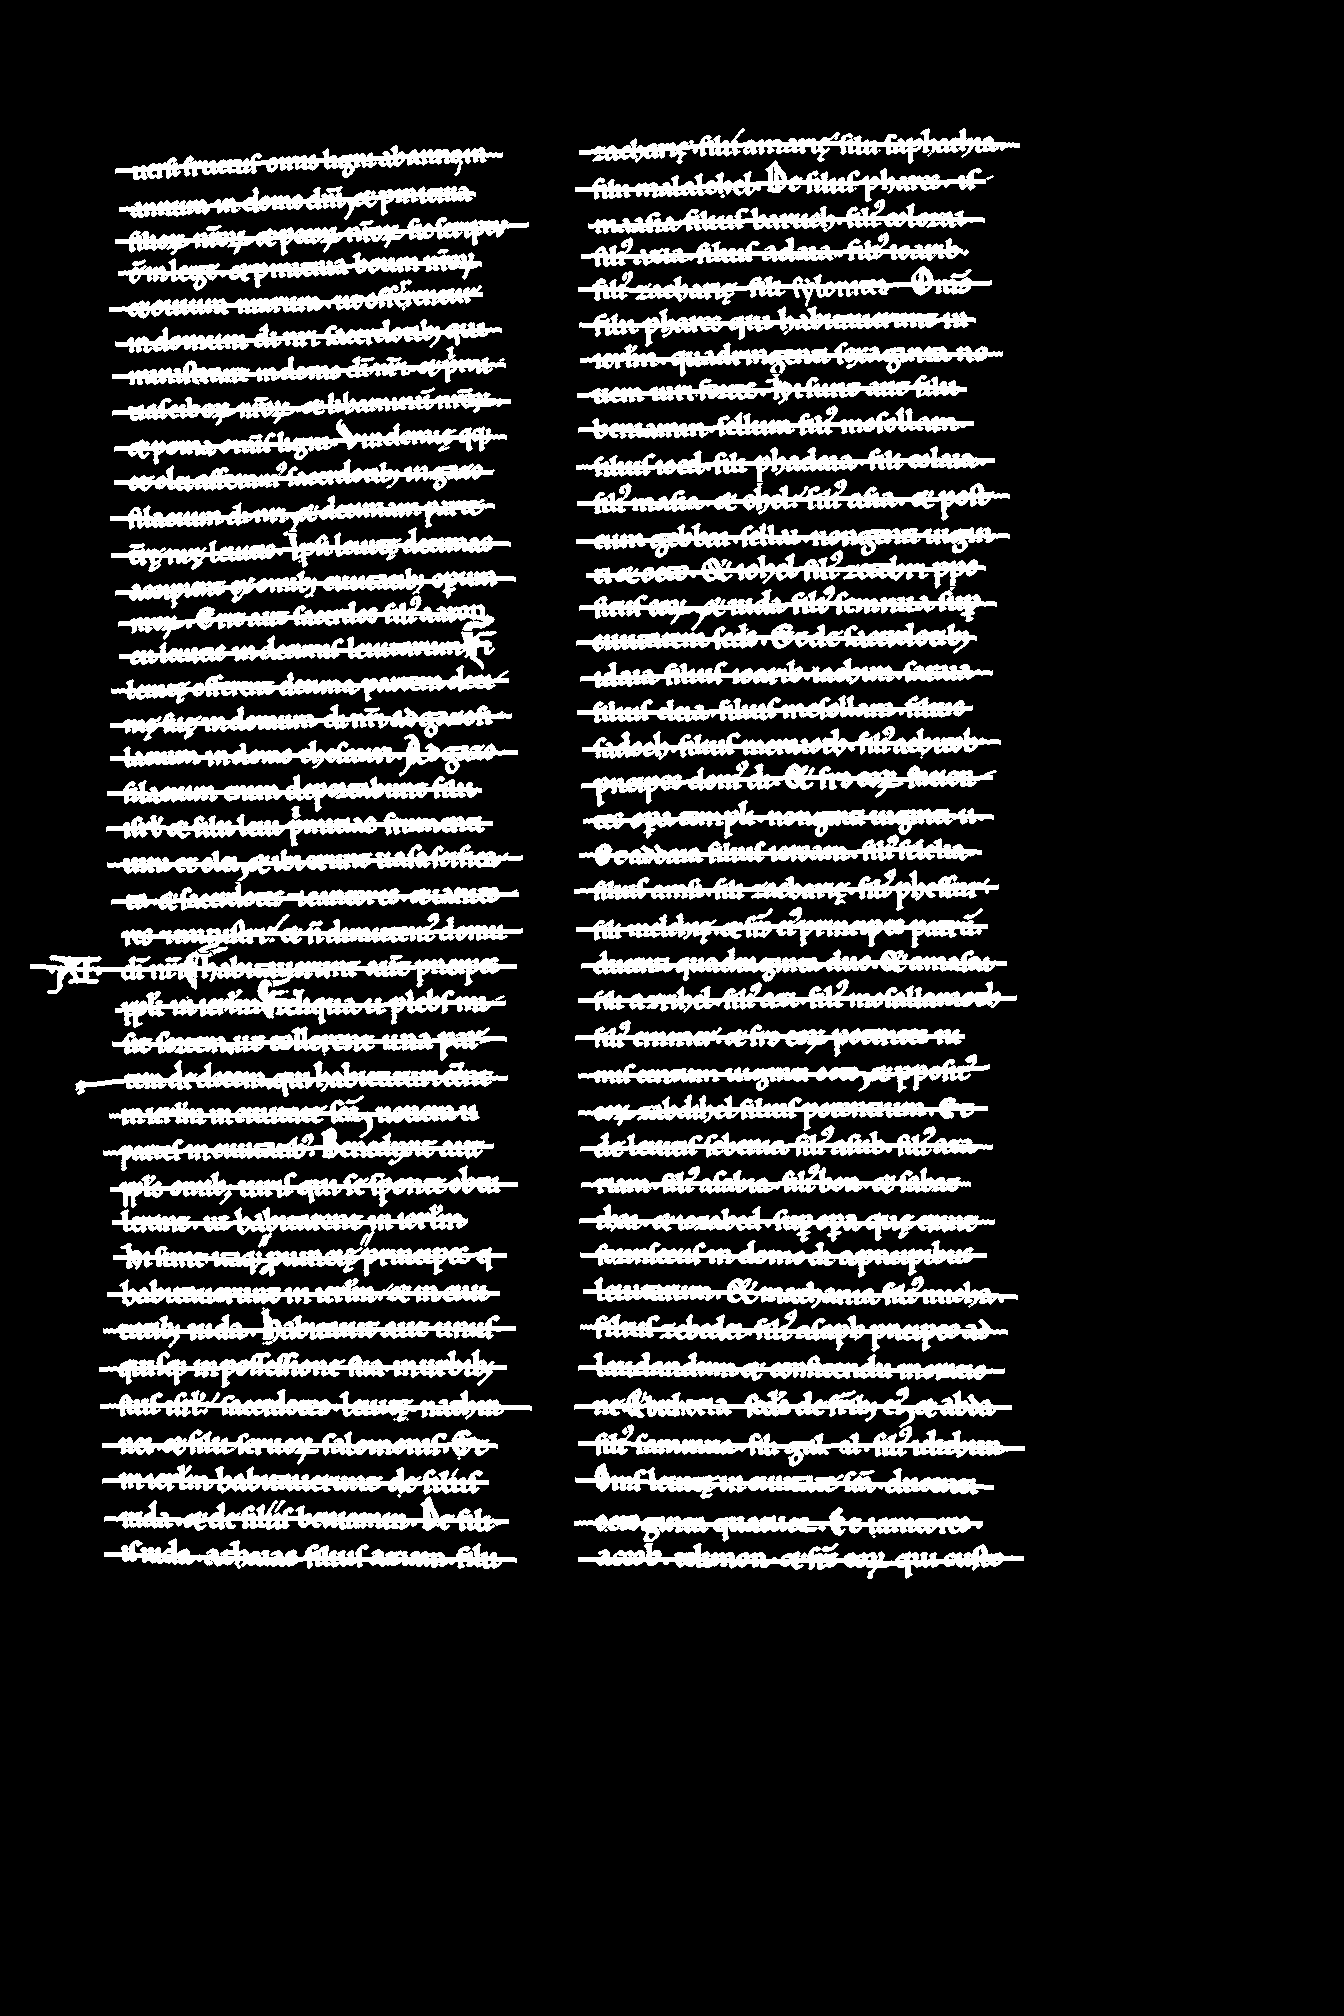 uersi fructus omis ligni ab anno in
annum in domo dni, et primitiua
filioꝝ nr̄oꝝ et pecoꝝ nr̄oꝝ sic scriptū
ē in lege et primitiua boum nr̄oꝝ
et ouium nr̄arum ut offerrentur
in domum di nri sacerdotibꝫ qui
ministrant in domo di nri et primi
et poma ligni Vindemię qꝫ
et olei afferemꝰ sacerdotibꝫ ad gazo
filacium di nri, et decimam partē
leuitis Ipsi leuitę decimas
accipient ex omibꝫ ciuitatibꝫ operum
Erit aut sacerdos filiꝰ aaron
cu leuitis in decimis leuitarum Et
leuitę offerent decima partem deci
mę suę in domum di nri ad gazofi
lacium in domo thesauri Ad gazo
filacium enim deportabunt filii
isrl et filii leui primicias frumenti
uini et olei, et ibi erunt uasa scificata
et sacerdotes et cantores et ianito
res et ministri et n dimittemꝰ domū
XI di nri Habitauerunt aut pncipes
ppli in ierlm Reliqua u plebs mi
sit sortem, ut tollerent una par
tem de decem, qui habitaturi eēnt
in ierlm in ciuitate scā, nouem u
partes in ciuitatibꝰ Benedixit aut
ppls omibꝫ uiris qui se sponte obtu
lerunt ut habitarent in ierlm
hi sunt itaqꝫ principes q
habitauerunt in ierlm et in ciui
tatibꝫ iuda Habitauit aut unus
quisqꝫ in possessione sua in urbibꝫ
suis isrl sacerdotes leuitę nathin
nei et filii seruoꝝ salomonis Et
in ierlm habitauerunt de filiis
iuda et de filiis beniamin De filii
is iuda athaias filius aziam filii
zacharię filii amarię filii saphathia
filii malalehel De filiis phares
maasia filius baruch filiꝰ colozai
filiꝰ azia filius adaia filiꝰ ioarib
filiꝰ zacharię filii sylonitis Oms
filii phares qui habitauerunt in
ierlm quadringenti sexaginta no
uem uiri fortes Hi sunt aut filii
beniamin sellum filiꝰ mosollam
filius ioed filii phadaia filii colaia
filiꝰ masia et ethel filiꝰ asia et post
eum gebbai sellai nongenti uigin
ti et octo Et iohel filiꝰ zechri ppo
situs eoꝝ, et iuda filiꝰ sennua sup
ciuitatem scds Et de sacerdotibꝫ
idaia filius ioarib iachim saraia
filius elcia filius mosollam filius
sadoch filius meraioth filiꝰ achitob
pncipes domꝰ di Et frs eoꝝ facien
tes opa templi nongenti uiginti u
Et addaia filius ieroam filiꝰ felelia
filius amsi filii zacharię filiꝰ phessur
filii melchię et frs eiꝰ principes patrū
ducenti quadraginta duo Et amasai
filii azrihel filiꝰ azi filiꝰ mosallamoth
filiꝰ emmer et frs eoꝝ potentes ni
mis centum uiginti octo, et ppositꝰ
eoꝝ zabdihel filius potentium Et
de leuitis sebenia filiꝰ asub filiꝰ aza
riam filiꝰ asabia filiꝰ boni et sabat
thai et iozabed sup opa quę erant
forinsecus in domo di a pncipibus
leuitarum Et mathania filiꝰ micha
filius zebedei filiꝰ asaph pnceps ad
laudandum et confitendū in oratio
ne Et becbecia scds de frībꝫ eiꝰ, et abda
filiꝰ sammua filii galal filiꝰ idithun
Oms leuitę in ciuitate scā ducenti
octoginta quatuor Et ianitores
accob telmon et frs eoꝝ qui custo